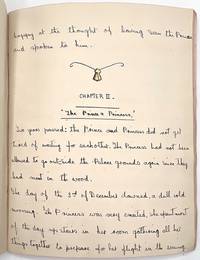 happy at the thought of having seen the Prince
and spoken to him.
CHAPTER II.
"The Prince & Princess."
Two years passed: the Prince and Princess did not get
tired of waiting for each other. The Princess had not been
allowed to go outside the Palace grounds again since they
had met in the wood.
The day of the 3rd of December dawned, a dull cold
morning. The Princess was very excited, she spent most
of the day upstairs in her room gathering all her
things together to prepare for her flight in the evening